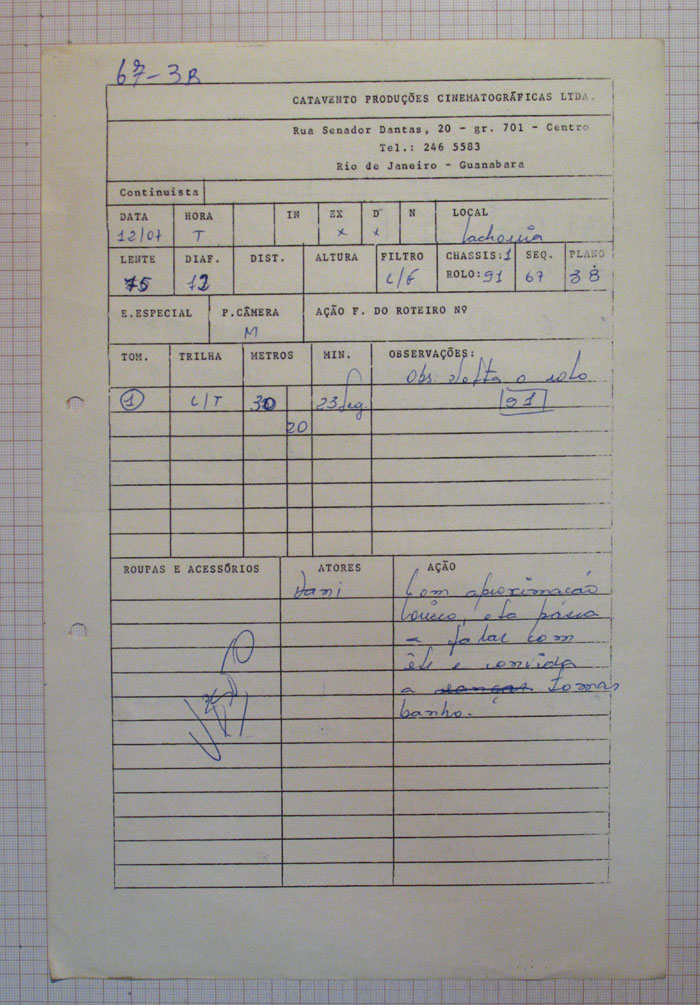 67-3B
CATAVENTO PRODUÇÕES CINEMATOGRÁFICAS LTDA.
Rua Senador Dantas, 20 - gr. 701 - Centro
Tel.: 246 5583
Rio de Janeiro - Guanabara
Continuista
DATA HORA IN EX D N LOCAL
12/07 T x x Cachoeira
LENTE DIAF. DIST. ALTURA FILTRO CHASSIS: 1 SEQ. PLANO
75 12 C/F ROLO: 91 67 3B
E.ESPECIAL P.CÂMERA AÇÃO F. DO ROTEIRO Nº
M
TOM. TRILHA METROS MIN. OBSERVAÇÕES:
Obs: o rolo
1 C/T 30 23 seg. 91
20
ROUPAS E ACESSÓRIOS ATORES AÇÃO
Vani Com aproximação
louco, ela passa
a falar com
êle e convida
a dançar tomar
banho.